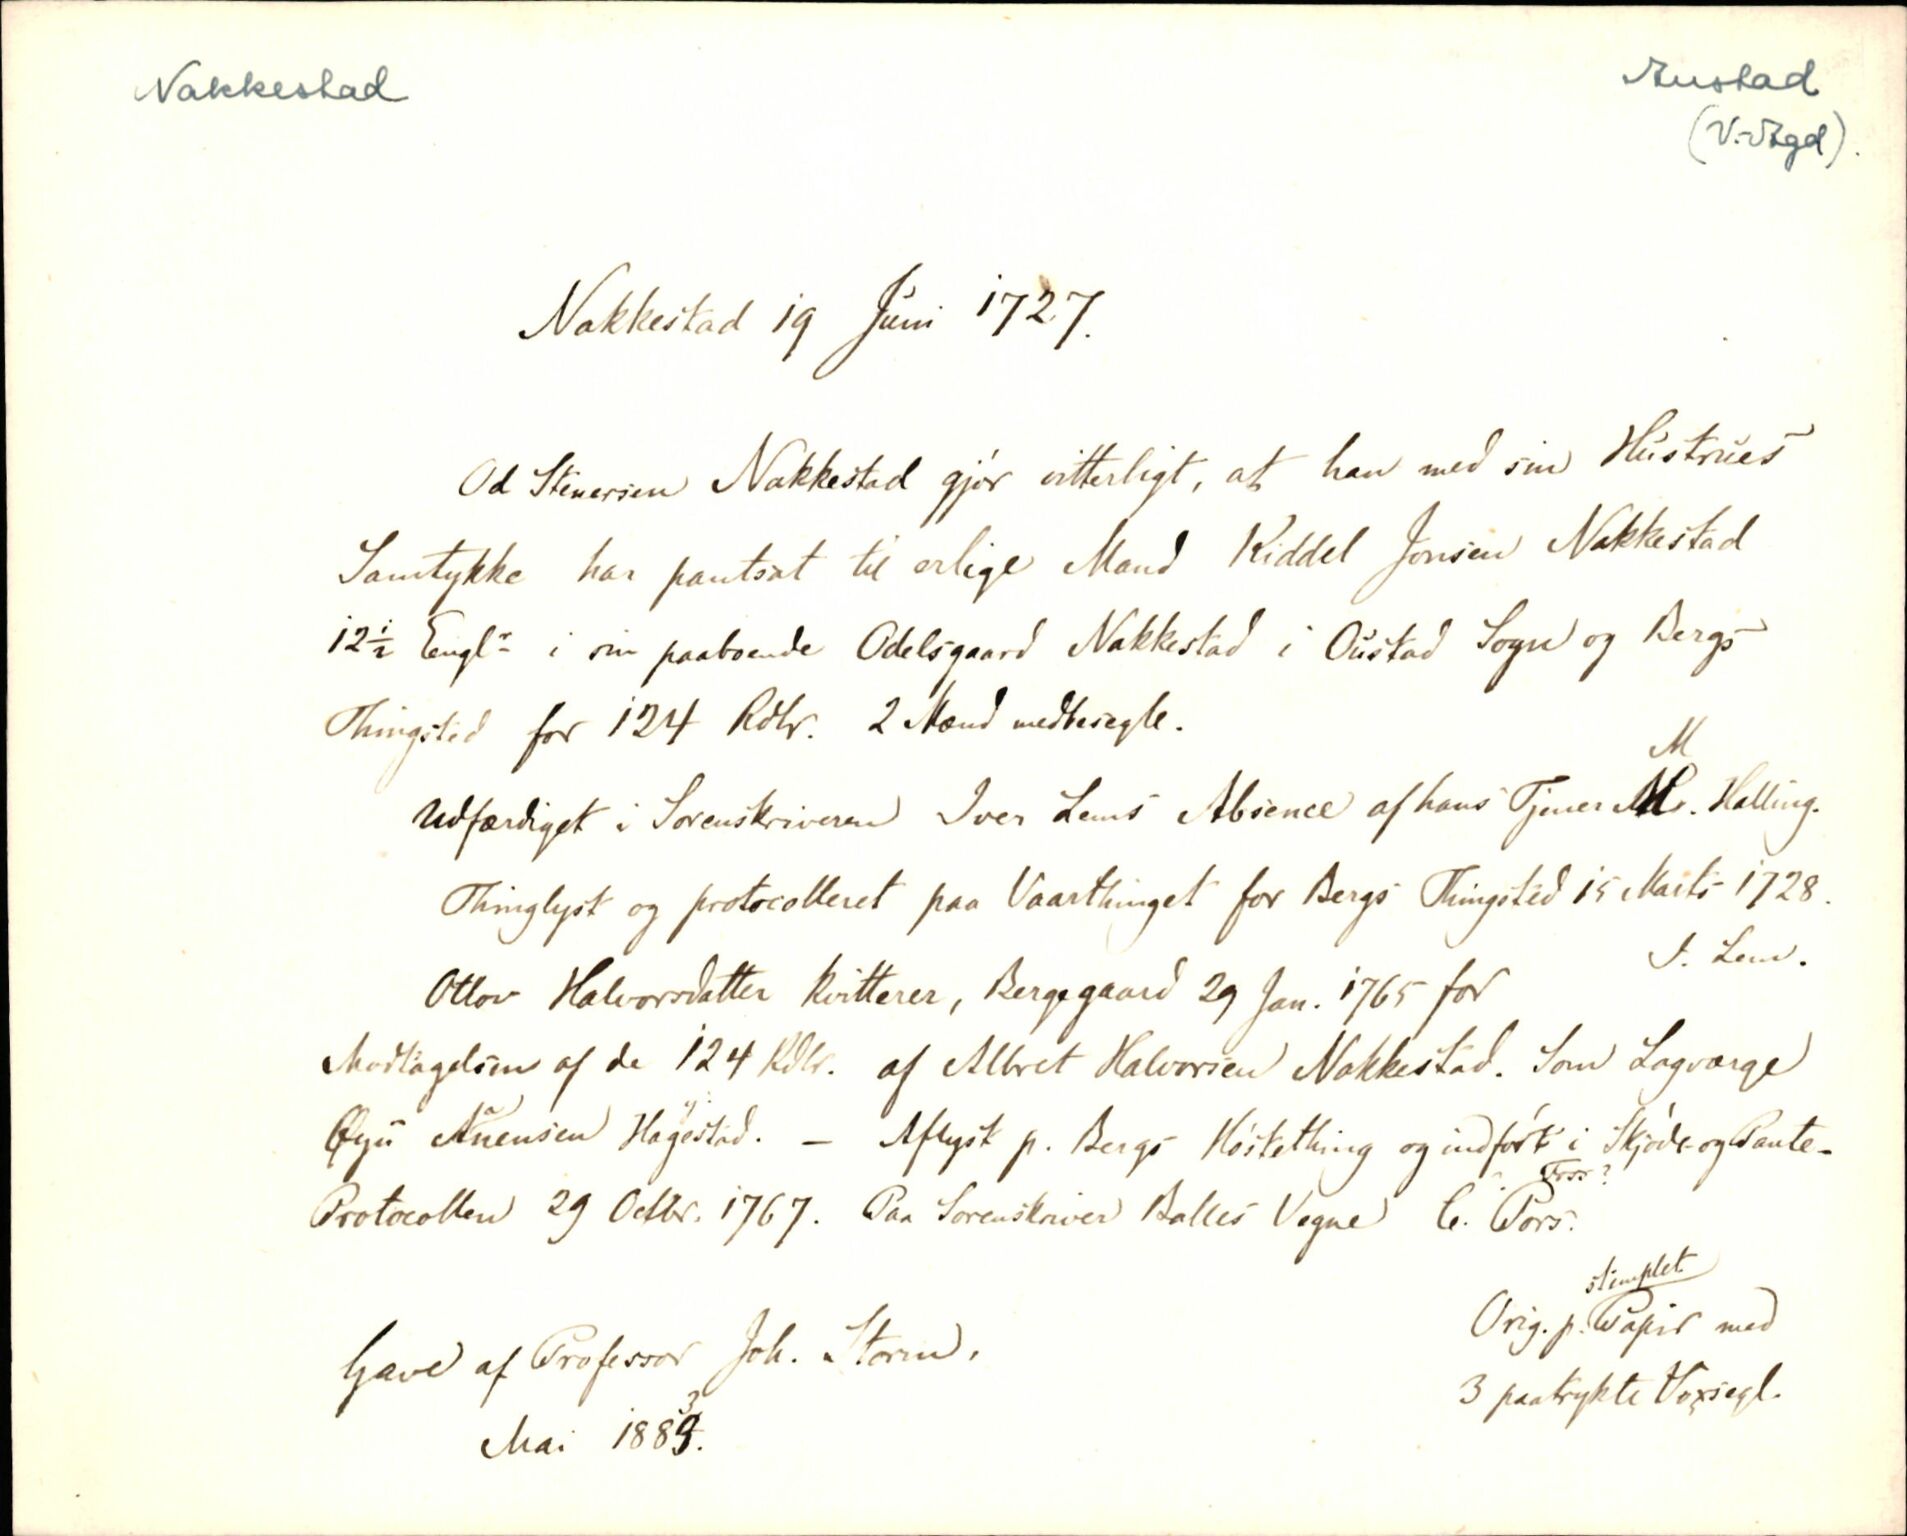 Nakkestad
Austad
(V.-Agd).
Nakkestad 19 Juni 1727.
Od Stenersen Nakkestad gjör vitterligt, at han med sin Hustrues
Samtykke har pantsat til erlige Mand Kiddel Jonsen Nakkestad
12½ Engl^r i sin paaboende Odelsgaard Nakkestad i Oustad Sogn og Bergs
Thingsted for 124 Rdlr. 2 Mænd medbesegle.
M
Udfærdiget i Sorenskriveren Iver Lems Absence af hans Tjener M. Halling.
Thinglyst og protocolleret paa Vaarthinget for Bergs Thingsted 15 Marts 1728.
I. Lem.
Otlov Halvorsdatter kvitterer, Bergegaard 29 Jan. 1765 for
Modtagelsen af de 124 Rdlr. af Albret Halvorsen Nakkestad. Som Lagværge
Öyü Anensen Högestad. — Aflyst p. Bergs Höstething og indfört i Skjöde- og Pante-
Foss?
Protocollen 29 Octbr. 1767. Paa Sorenskriver Balles Vegne C. Pors.
stemplet
Orig. p. Papir med
3 paatrykte Voxsegl.
Gave af Professor Joh. Storm.
Mai 1883.